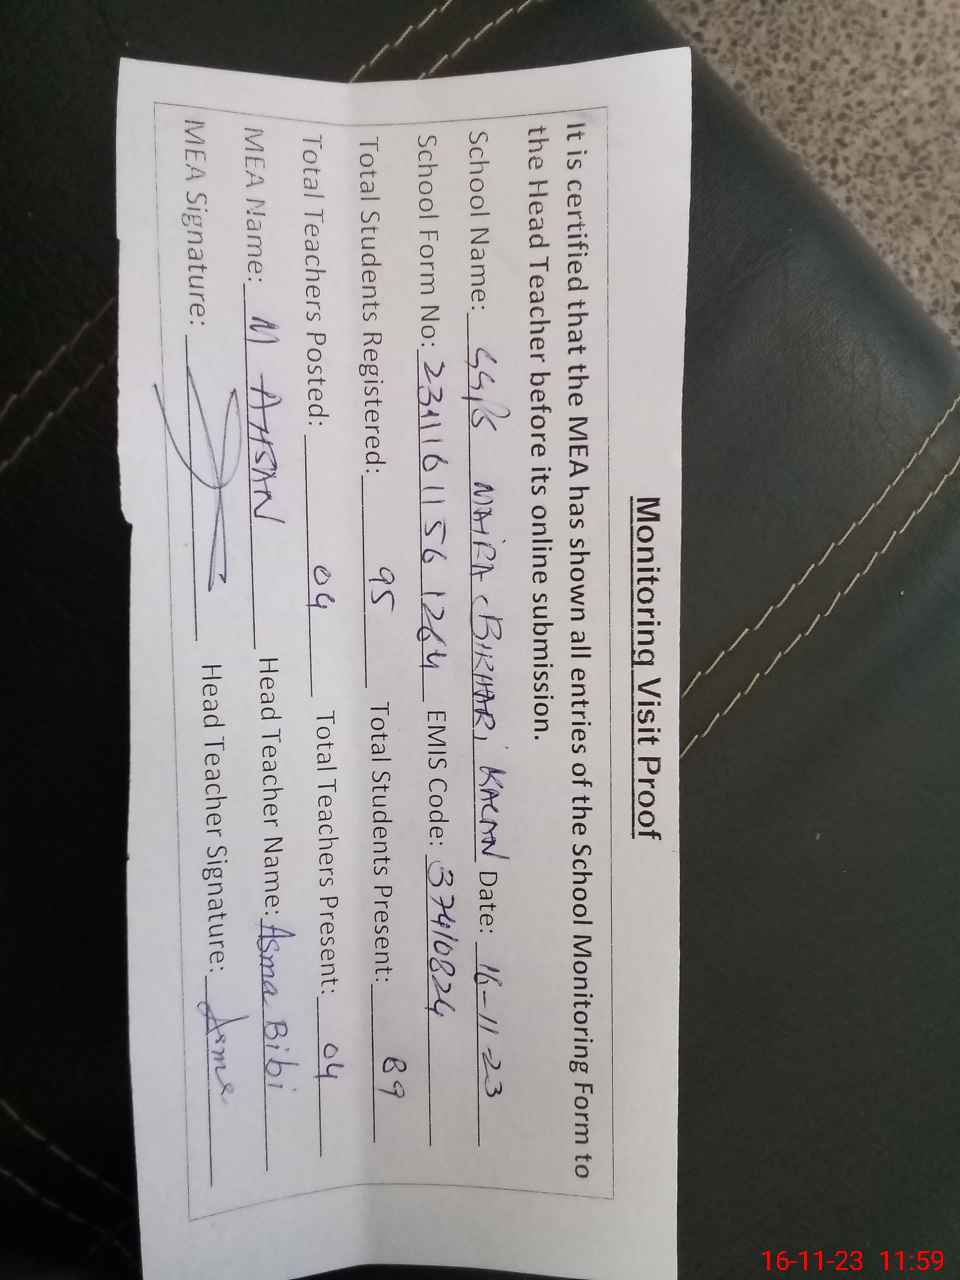 Monitoring Visit Proof
It is certified that the MEA has shown all entries of the School Monitoring Form to
the Head Teacher before its online submission.
School Name: GGPS MAIRA BIRHARI KALAN Date: 16-11-23
School Form No: 23111611561264 EMIS Code: 37410824
Total Students Registered: 95 Total Students Present: 89
Total Teachers Posted: 04 Total Teachers Present: 04
MEA Name: M AHSAN Head Teacher Name: Asma Bibi
MEA Signature: Head Teacher Signature: Asma
16-11-23 11:59